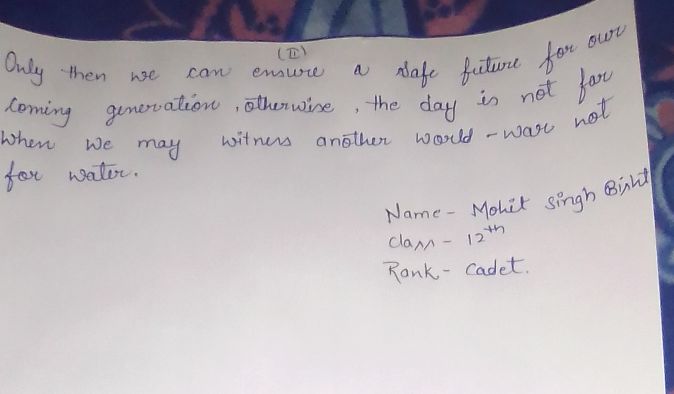 (II)
Only then we can ensure a safe future for our
coming generation, otherwise, the day is not far
when we may witness another world-war not
for water.
Name - Mohit Singh Bisht
Class - 12th
Rank - Cadet.